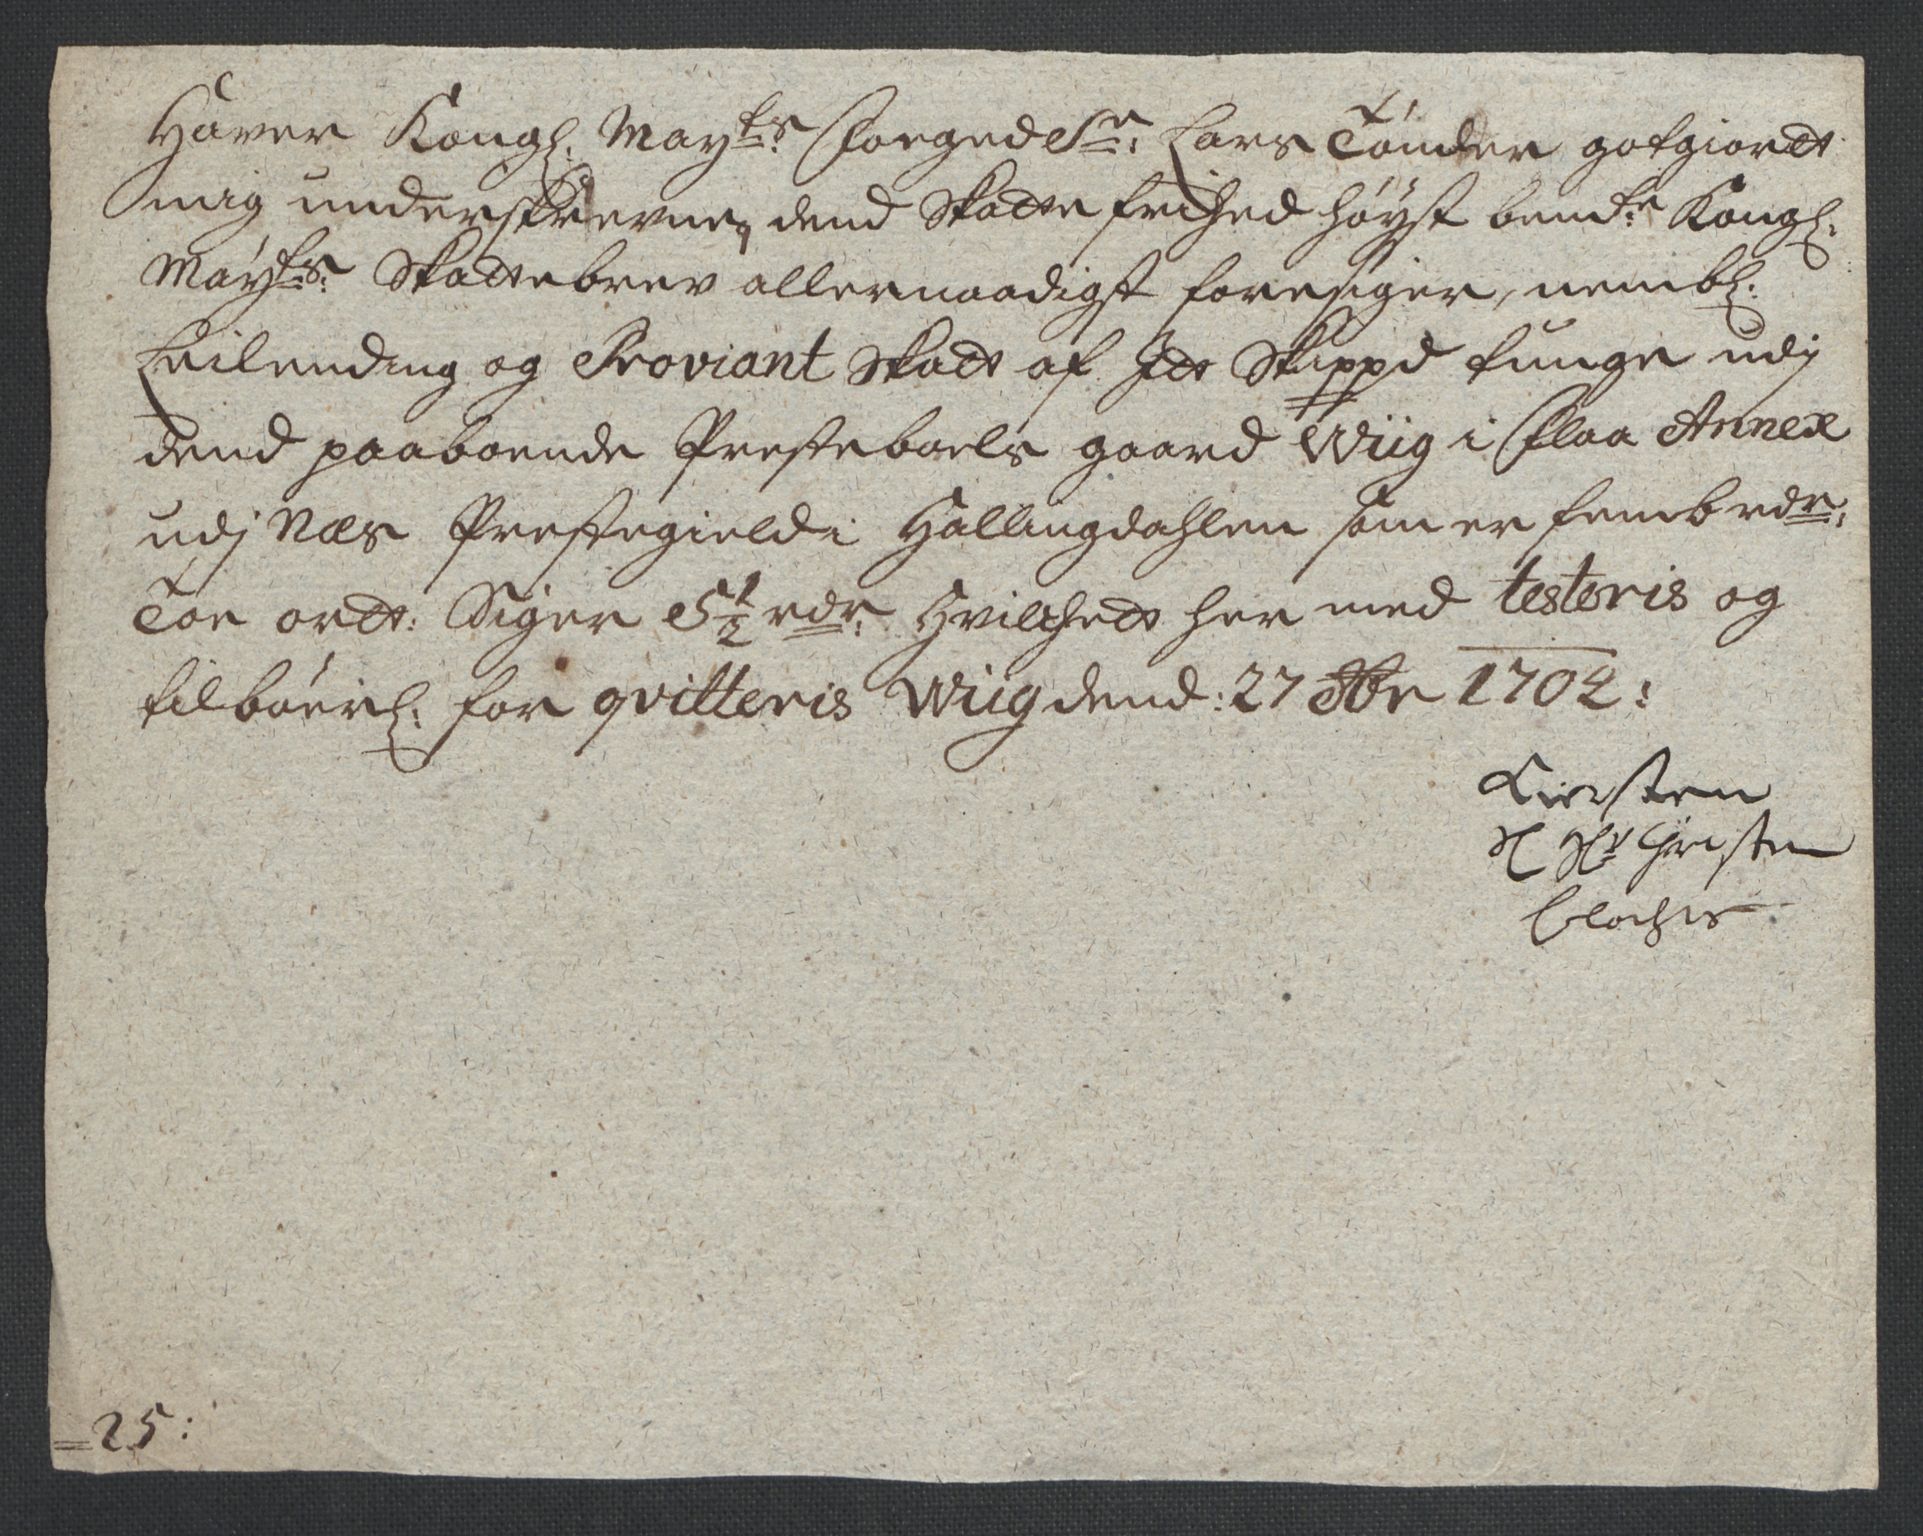 Hawer Kongl: Mayts: Foeged Sr: Lars Tønder gotgiordt
mig underskrevne, dend Skatte frihed høyst bemte: Kongl:
Mayts: Skattebrev allernaadigst foresiger, nembl:
Leilending og Proviant Skatt af Itt Skippd tunge udj
dend paaboende Presteboels gaard Wiig i Flaa Annex
udj Næs Prestegield i Hallingdahlen som er femb rdr:
Toe ordt: Siger 5½ rdr: Hvilchedt her med testeris og
tilbørl: for qvitteris Wiig dend: 27 Xbr 1702:
Kiersten
Sl Hr Christen
=25: